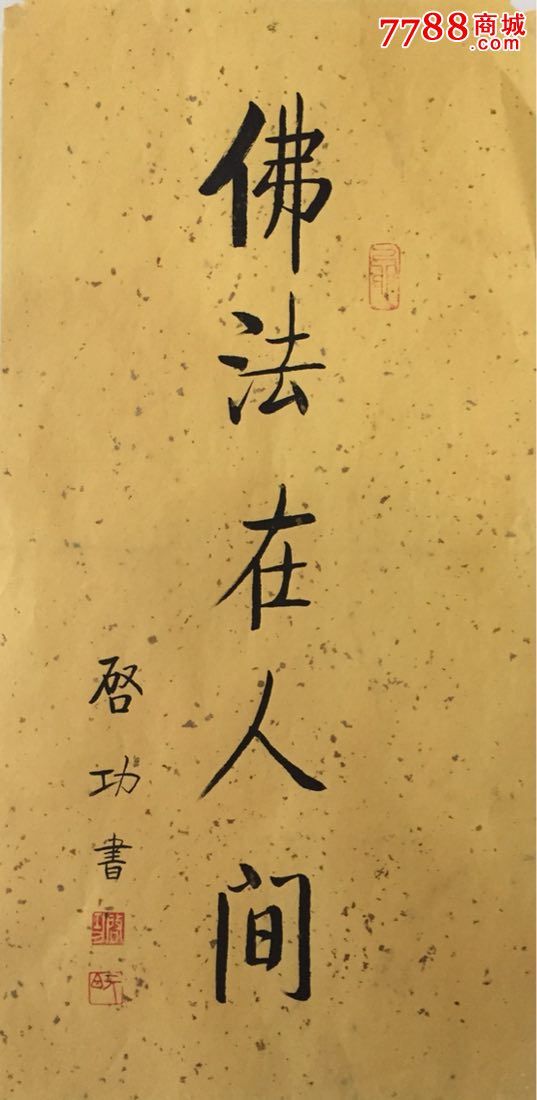 7788商城
.com
佛法在人间
啓功書